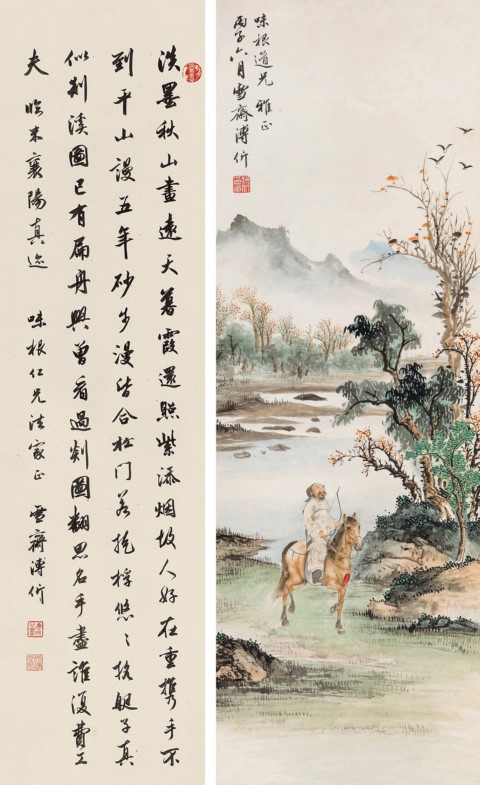 味根道兄雅正
丙子六月雪齋溥伒
淡墨秋山畫遠天暮霞還照紫添烟故人好在重攜手不
到平山謾五年砂步漫皆合松門若掩桴悠〻搖艇子真
似剡溪圖已有扁舟興曾看過剡圖翻思名手盡誰復費工
夫 臨米襄陽真迹 味根仁兄法家正 雪齋溥伒